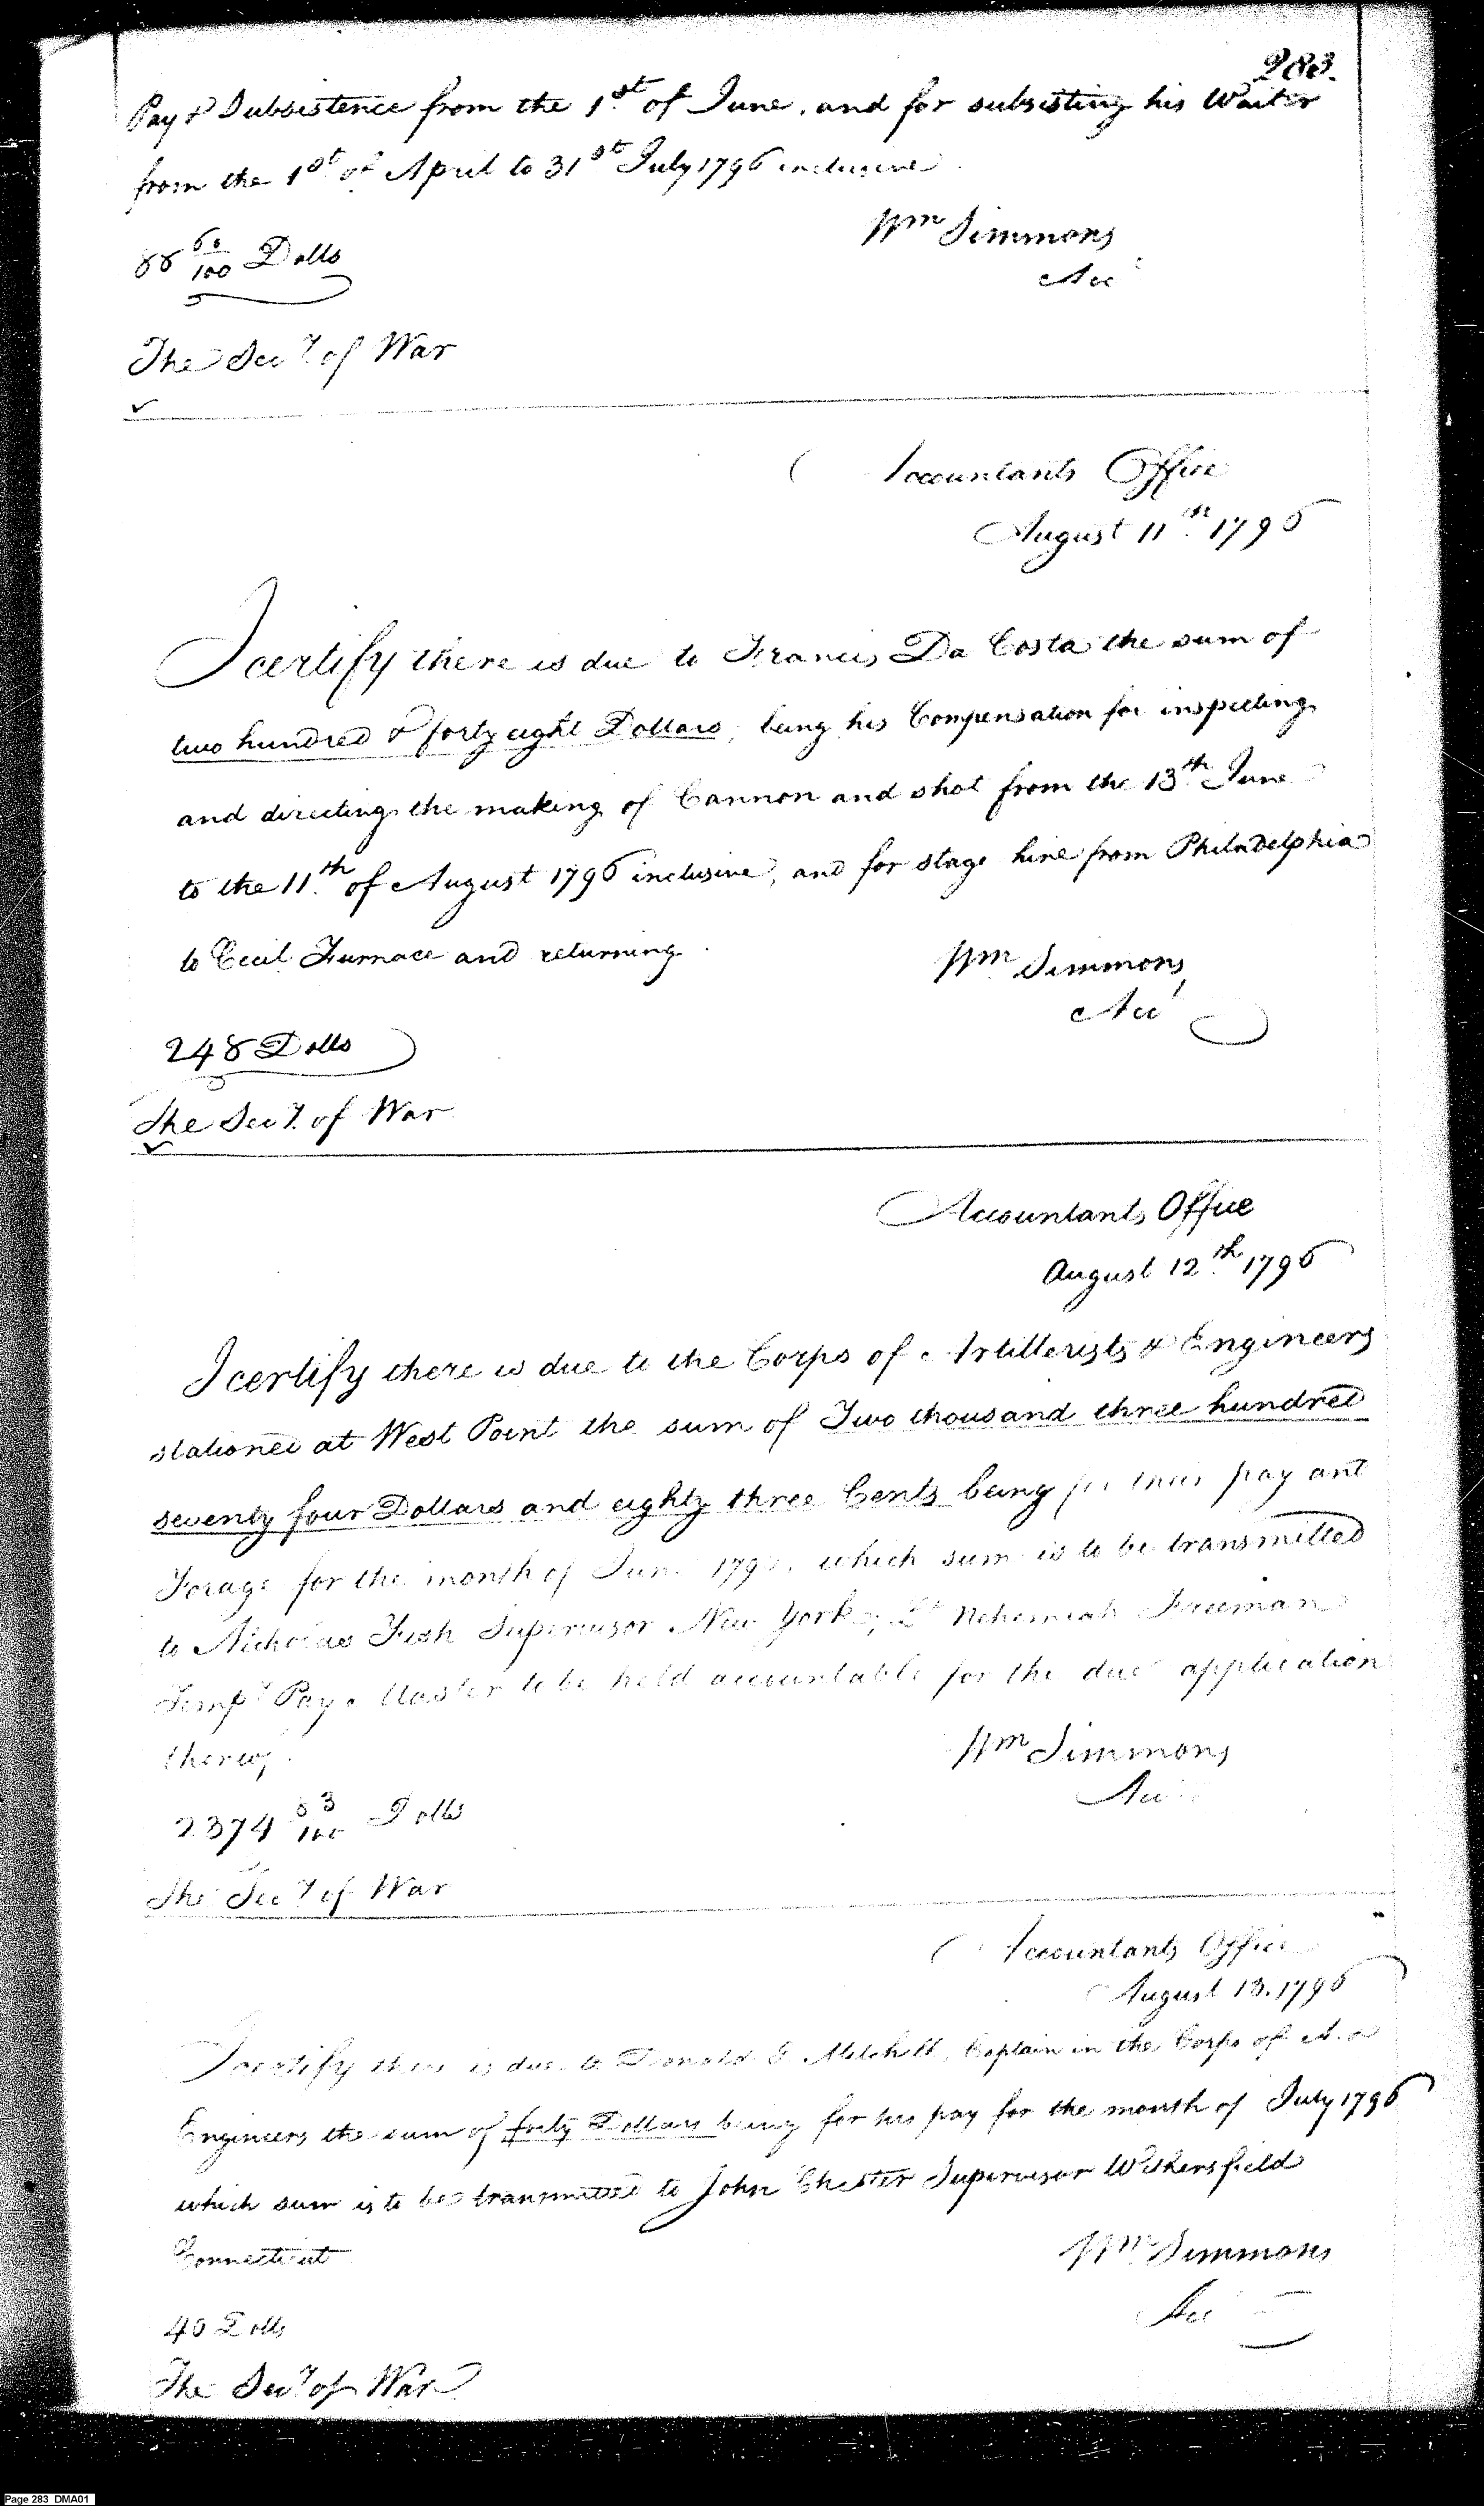 283.
Pay & Subsistence from the 1st of June, and for subsisting his Waiter
from the 1st of April to 31st July 1796 inclusive.
Wm Simmons
88 60/100 Dolls
Acc
The Secy. of War
Accountants Office
August 11th 1796
I certify there is due to Francis Da Costa the sum of
two hundred & forty eight Dollars, being his Compensation for inspecting
and directing the making of Cannon and shot from the 13th June
to the 11th of August 1796 inclusive, and for stage hire from Philadelphia
to Cecil Furnace and returning.
Wm Simmons
Acct
248 Dolls
The Secy. of War
Accountants Office
August 12th 1796
I certify there is due to the Corps of Artillerists & Engineers
stationed at West Point the sum of Two thousand three hundred
seventy four Dollars and eighty three Cents being for their pay and
Forage for the month of June 1796, which sum is to be transmitted
to Nicholas Fish Supervisor New York; Lt Nehemiah Freeman
Tempy Pay Master to be held accountable for the due application
thereof.
Wm Simmons
Acc
2374 83/100 Dolls
The Secy of War
Accountants Office
August 13. 1796
I certify there is due to Donald G Mitchell, Captain in the Corps of A. &
Engineers the sum of forty Dollars being for his pay for the month of July 1796
which sum is to be transmitted to John Chester Supervisor Wethersfield
Connecticut
Wm Simmons
Acc
40 Dolls
The Secy of War
Page 283 DMA01